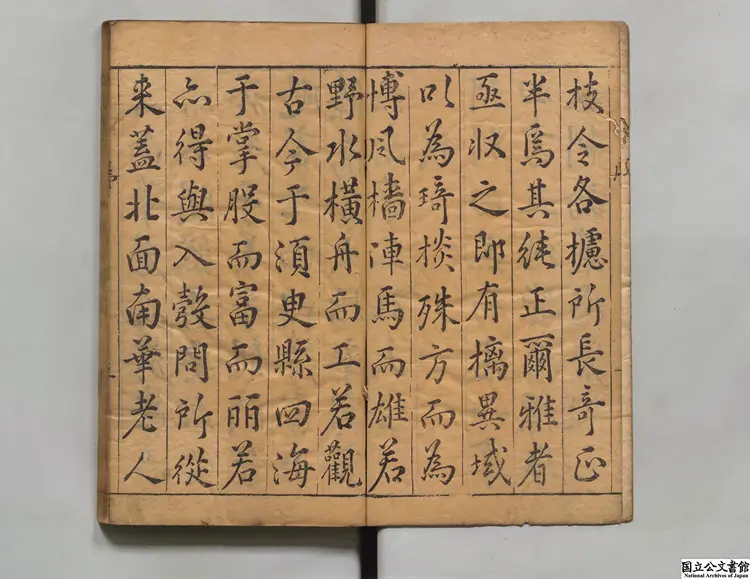 枝令各攄所長奇正
半為其純正爾雅者
亟収之即有摛異域
以為琦掞殊方而為
博風檣陣馬而雄若
野水橫舟而工若觀
古今于須臾縣四海
于掌股而富而丽若
亦得與入彀問所從
来蓋北面南華老人
国立公文書館
National Archives of Japan